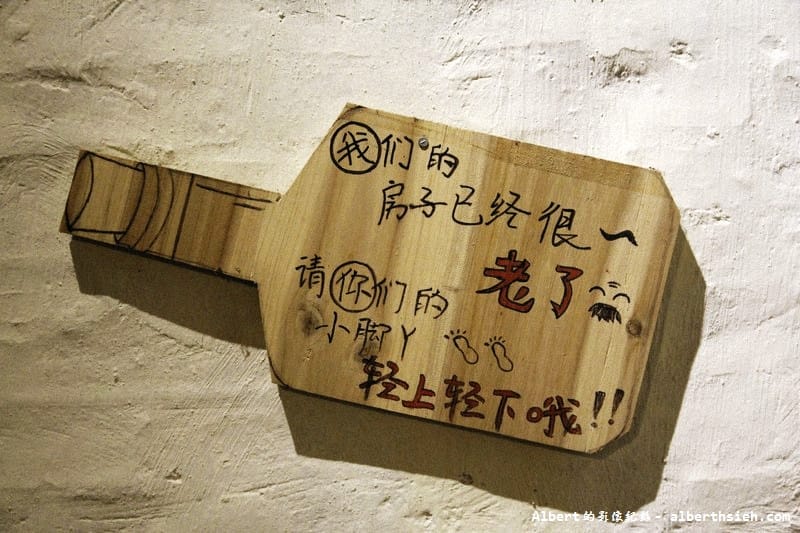 我们的
房子已经很~
老了
请你们的
小脚丫
轻上轻下哦!!
Albert的影像紀錄 - alberthsieh.com